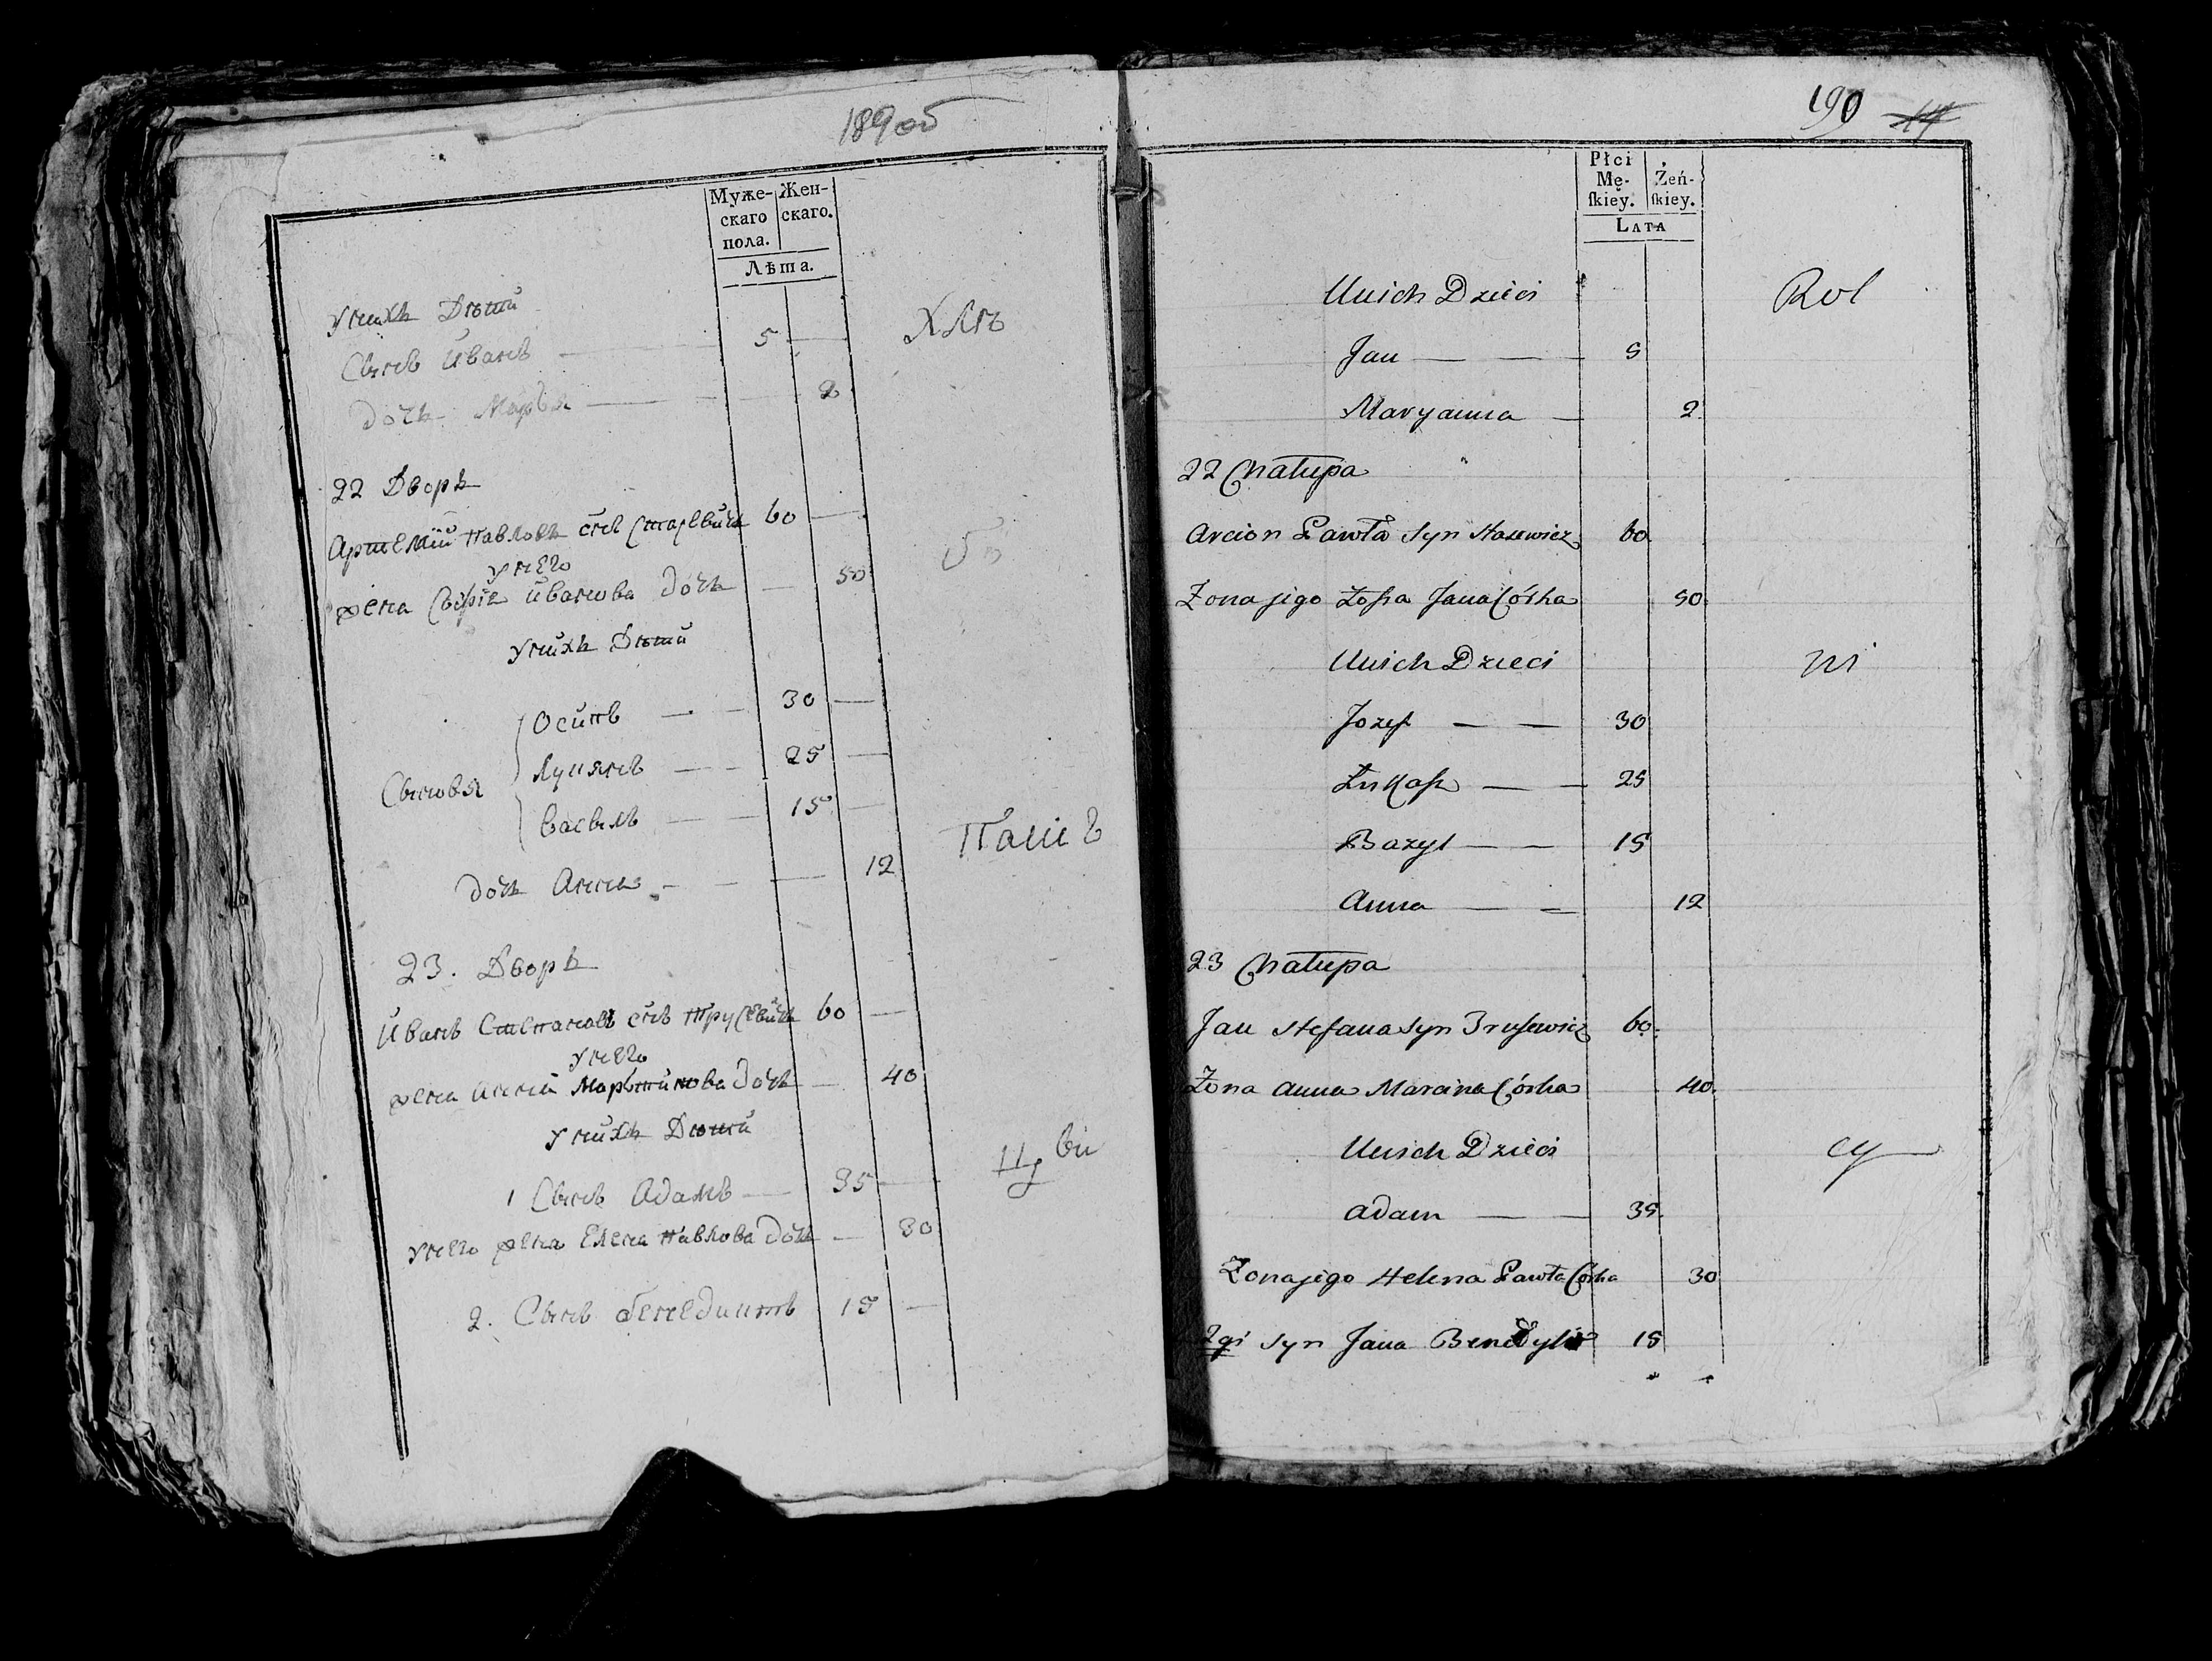 189 об
Муже-
скаго
пола.
Жен-
скаго.
Лѣта.
У нихъ Дѣти
Сынъ Иванъ — 5 —
дочь Марья — 2
22 Дворъ
Артемій Павловъ сынъ 60 —
У него
жена Иванова дочь — 50
У нихъ Дѣти
Сыновья
Осипъ — — 30 —
25 —
Василь — — 15 —
дочь Анна — — — 12
Пашс
23. Дворъ
Иванъ Степановъ сынъ Трусевичъ 60 —
У него
жена Анна Мартинова дочь — 40
У нихъ Дѣти
1 Сынъ Адамъ — 35 —
У него жена Елена Павлова дочь — 30
2. Сынъ Бенедиктъ 15 —
190
Płci
Mę-
ſkiey.
Żeń-
ſkiey.
Lata
Unich Dzieci
Rol
Jan — — 5
Maryanna — 2
22 Chałupa
Arcion Pawła Syn Stasewicz 60
Żona jego Zofia Jana Córka 50
Unich Dzieci
ni
Jozef — — 30
Łukasz — — 25
Bazyl — — 15
Anna — — 12
23 Chałupa
Jan Stefana Syn Trusewicz 60.
Żona Anna Marcina Córka 40.
Unich Dzieci
cy
Adam — — 35.
Żona jego Helena Pawła Córka 30
2gi Syn Jana Benedykt 15